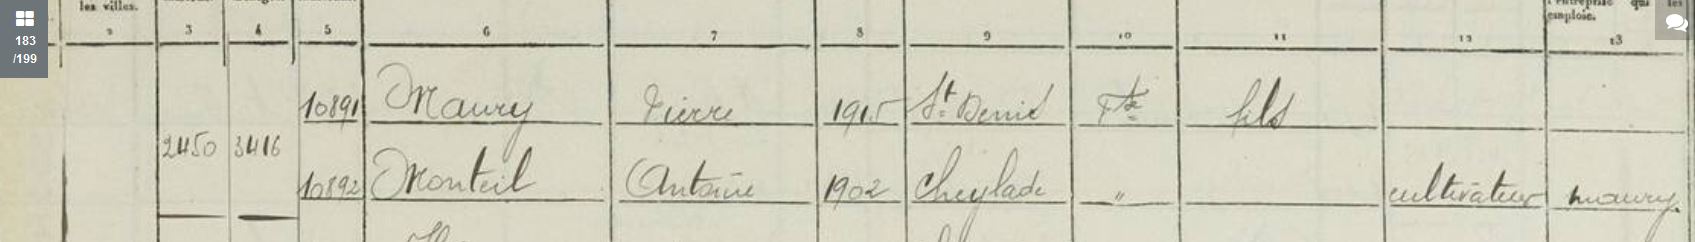 183
/199
les villes.
l'entreprise qui les
emploie.
2 3 4 5 6 7 8 9 10 11 12 13
10891 Maury Pierre 1915 St Denis Fse fils
2450 3416
10892 Monteil Antoine 1902 Cheylade " cultivateur maury